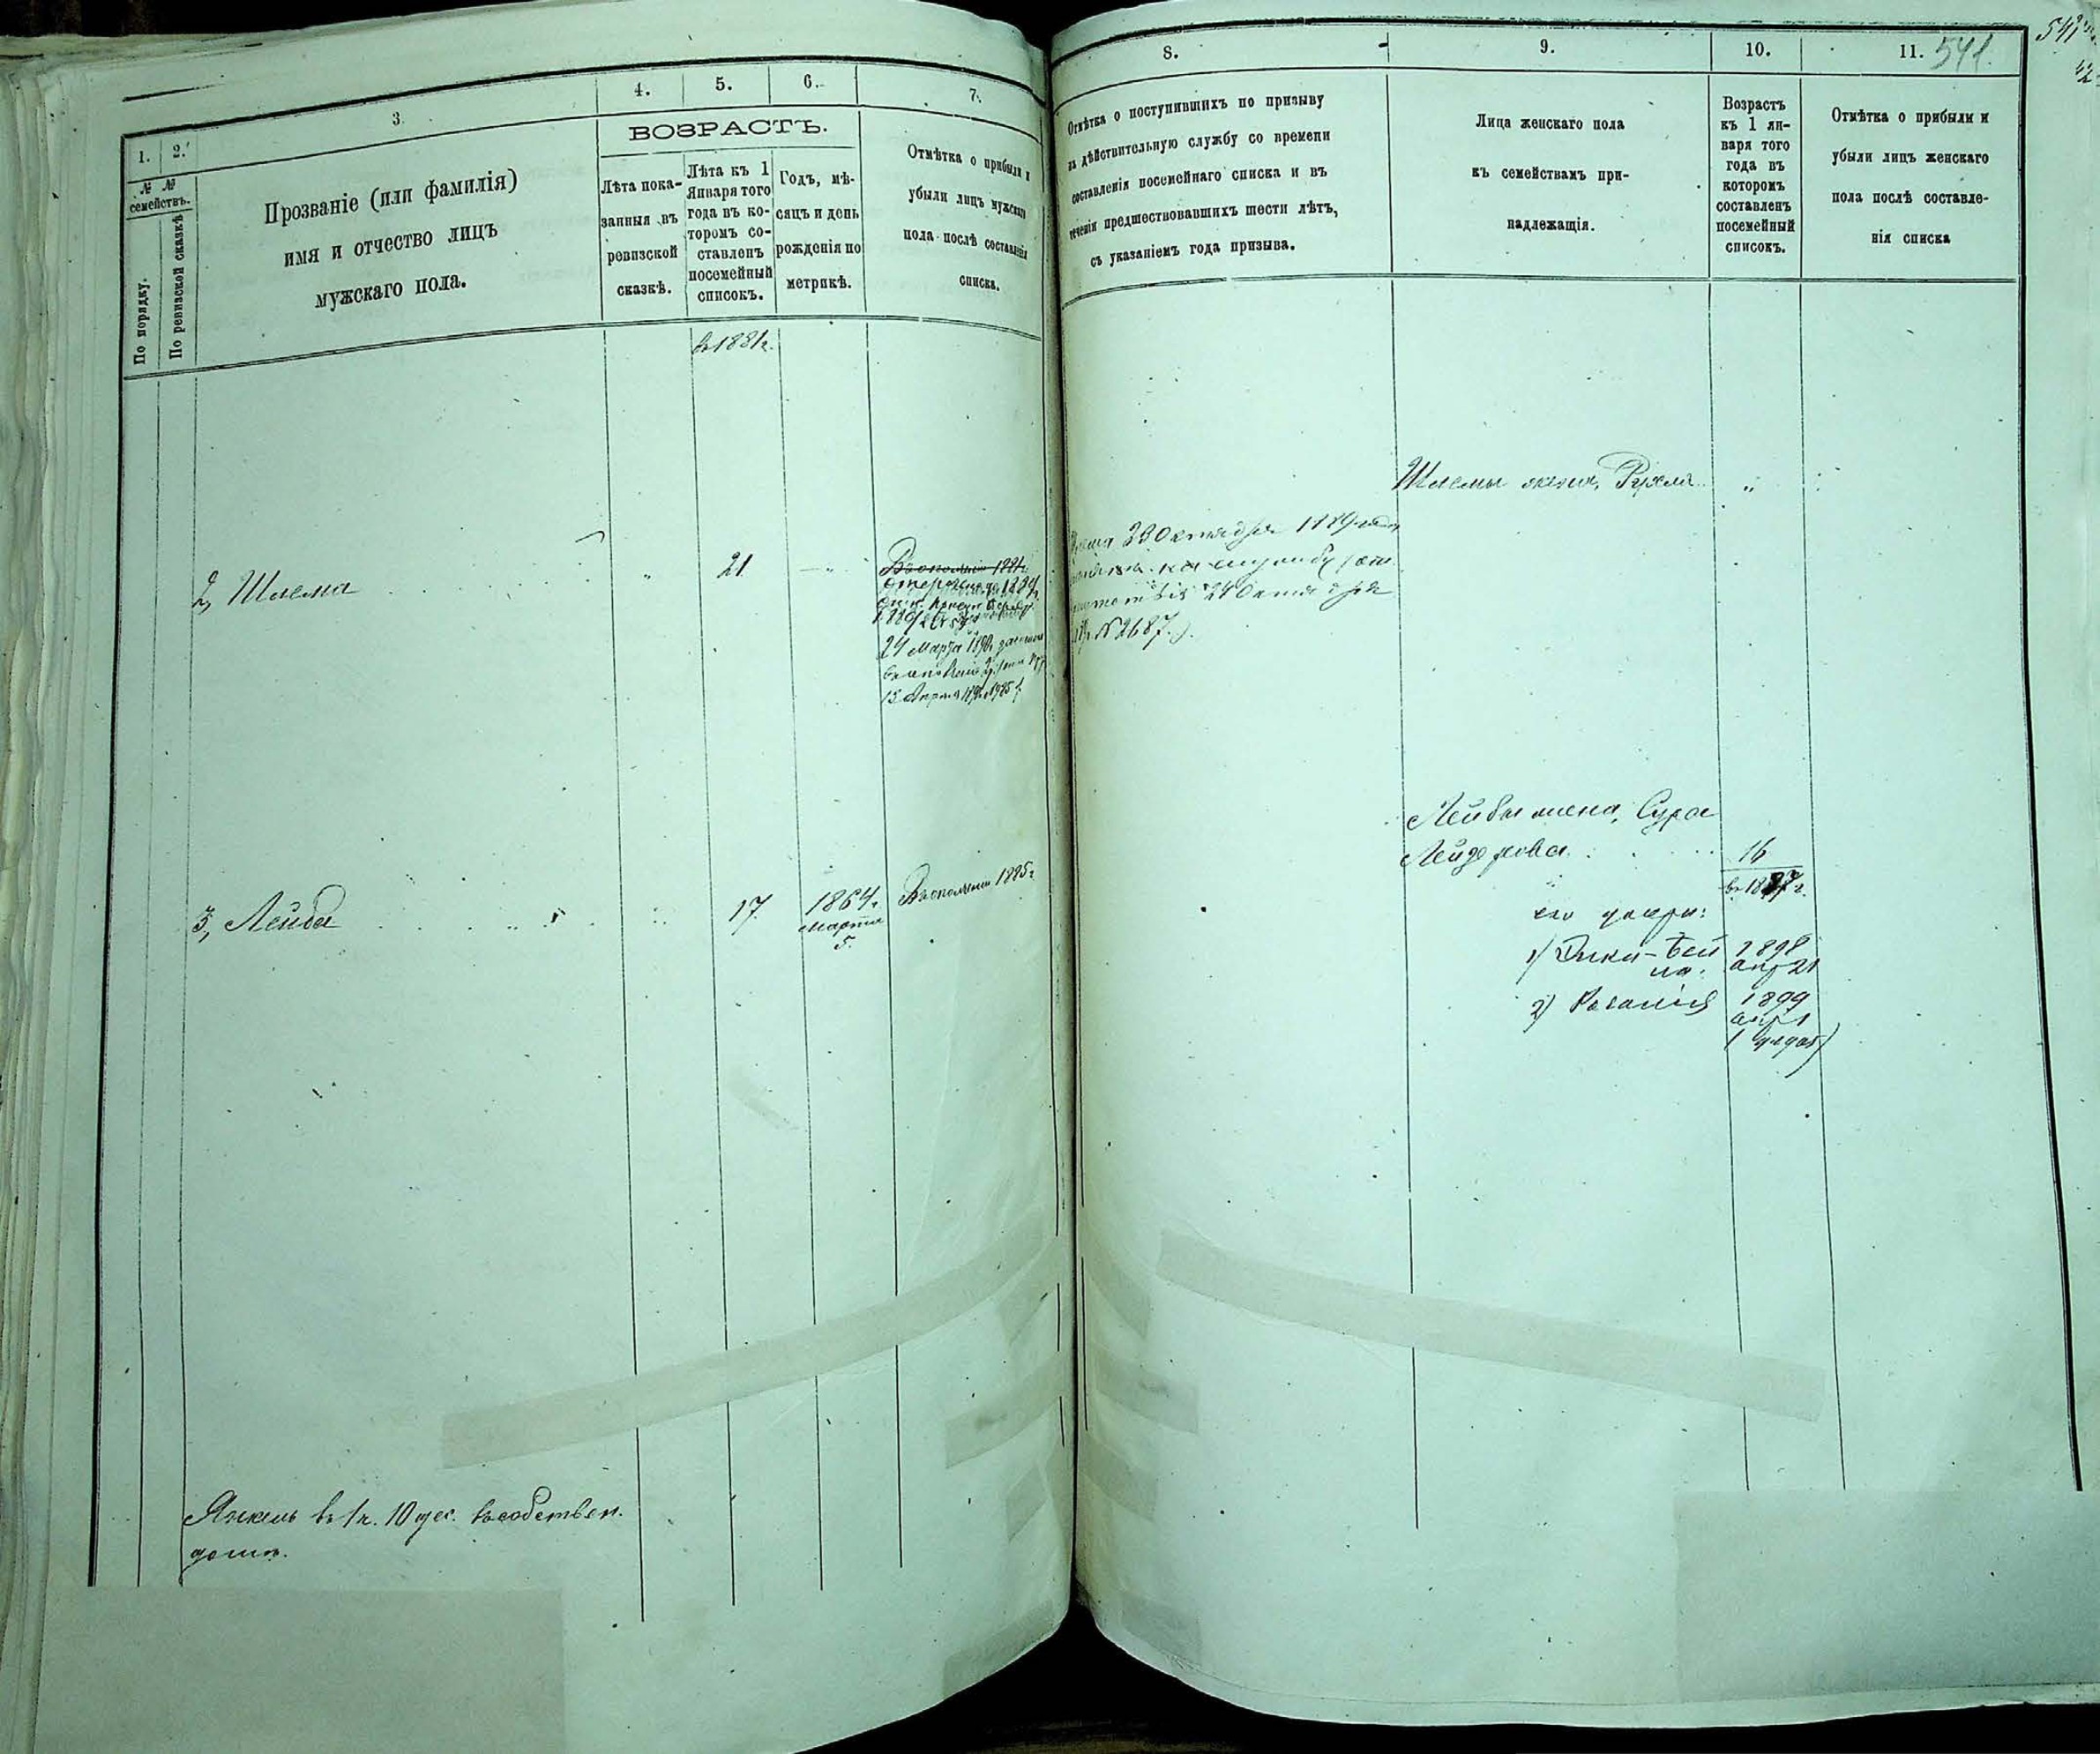 1.
2.
3.
4.
5.
6.
7.
№ №
семействъ.
По порядку.
По ревизской сказкѣ
Прозваніе (или фамилія)
имя и отчество лицъ
мужскаго пола.
ВОЗРАСТЪ.
Лѣта пока-
занныя въ
ревизской
сказкѣ.
Лѣта къ 1
Января того
года въ ко-
торомъ со-
ставленъ
посемейный
списокъ.
Годъ, мѣ-
сяцъ и день
рожденія по
метрикѣ.
Отмѣтка о прибыли и
убыли лицъ мужскаго
пола послѣ составленія
списка.
въ 1881 г.
2, Шлема
21
24 Марта
3, Лейба
17
1864 г.
марта
5.
1885 г
Янкель въ 1 ч. 10 дес. въ собствен.
домѣ.
8.
9.
10.
11.
541.
541
Отмѣтка о поступившихъ по призыву
на дѣйствительную службу со времени
составленія посемейнаго списка и въ
теченіи предшествовавшихъ шести лѣтъ,
съ указаніемъ года призыва.
Лица женскаго пола
къ семействамъ при-
надлежащія.
Возрастъ
къ 1 ян-
варя того
года въ
которомъ
составленъ
посемейный
списокъ.
Отмѣтка о прибыли и
убыли лицъ женскаго
пола послѣ составле-
нія списка
Шлемы жена, Рухля
23 Октября 1889
на службу
24 Октября
№ 2687.).
Лейбы жена, Сура
Лейзерова
16
его дочери:
1) Бей
на
1898
апр 21
2)
1899
апр 1